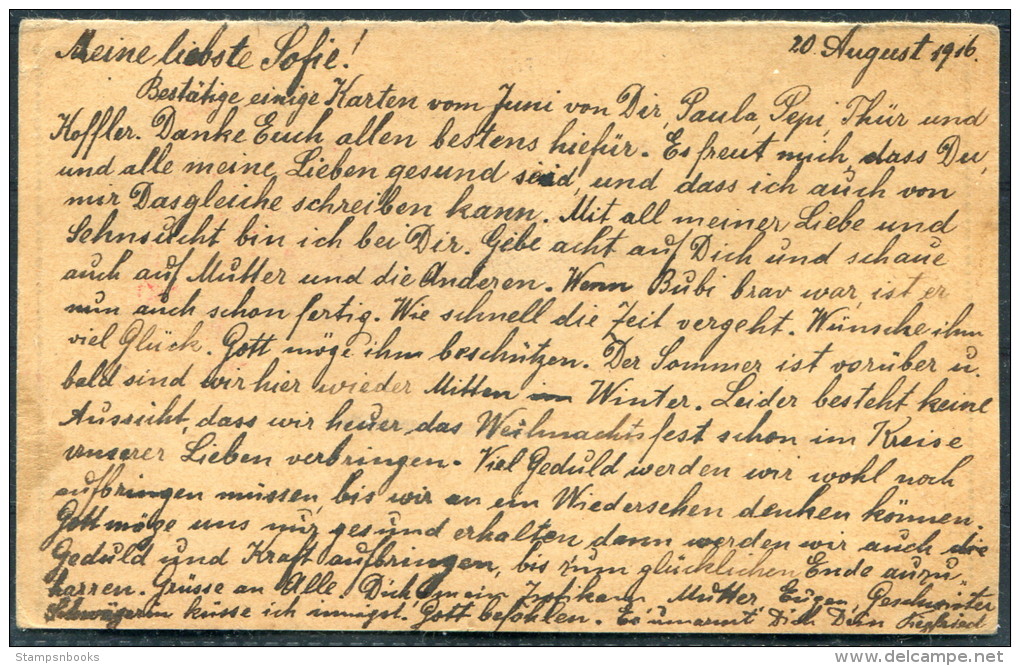 20. August 1916.
Meine liebste Sofie!
Bestätige einige Karten vom Juni von Dir, Paula, Pepi, Thür und
Koffler. Danke Euch allen bestens hiefür. Es freut mich, dass Du,
und alle meine Lieben gesund seid, und dass ich auch von
mir Dasgleiche schreiben kann. Mit all meiner Liebe und
Sehnsucht bin ich bei Dir. Gebe acht auf Dich und schaue
auch auf Mutter und die Anderen. Wenn Bubi brav war, ist er
nun auch schon fertig. Wie schnell die Zeit vergeht. Wünsche ihm
viel Glück. Gott möge ihn beschützen. Der Sommer ist vorüber u.
bald sind wir hier wieder Mitten im Winter. Leider besteht keine
Aussicht, dass wir heuer das Weihnachtsfest schon im Kreise
unserer Lieben verbringen. Viel Geduld werden wir wohl noch
aufbringen müssen, bis wir an ein Wiedersehen denken können.
Gott möge uns nur gesund erhalten dann werden wir auch die
Geduld und Kraft aufbringen, bis zum glücklichen Ende auszu-
harren. Grüsse an Alle. Dich, mein Mutter Eugen, Geschwister
Schwägerin küsse ich innigst. Gott befohlen. Es umarmt Dich Dein Siegfried
Stampsnbooks
www.delcampe.net